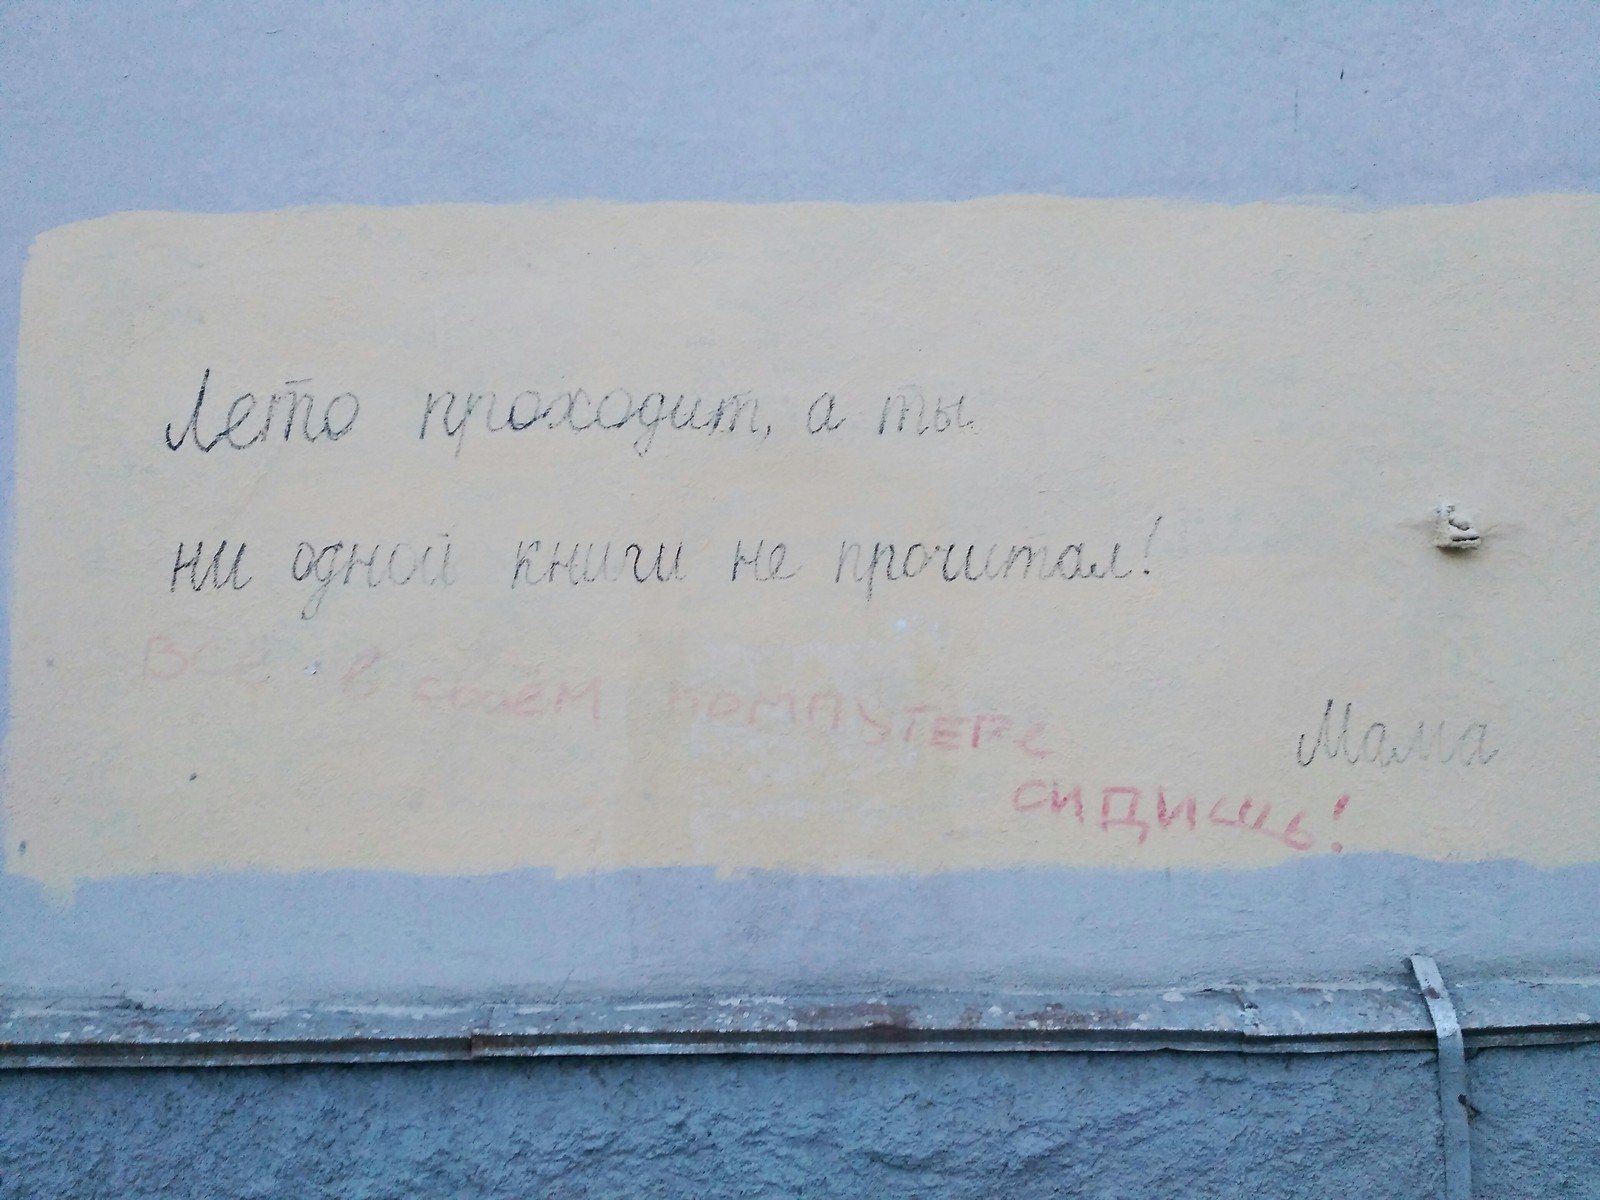 Лето проходит, а ты
ни одной книги не прочитал!
Всё в своём компутере
сидишь!
Мама